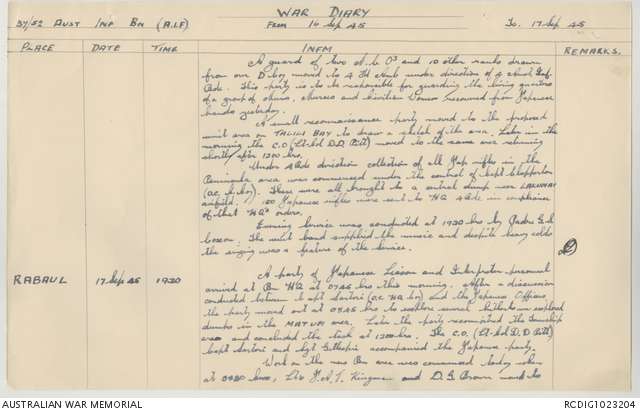 WAR DIARY
37/52 AUST INF BN (A.I.F) FROM 16 Sep 45 To. 17 Sep 45
PLACE DATE TIME INFM REMARKS.
A guard of two N.C.O's and 10 other ranks drawn
from our D Coy moved to 4 Fd Amb under direction of 4 Aust Inf
Bde. This party is to be responsible for guarding the living quarters
of a group of nuns, nurses and civilian women recovered from Japanese
hands yesterday.
A small reconnaissance party moved to the proposed
unit area on TALILI BAY to draw a sketch of the area. Later in the
morning the C.O (Lt-Col D.D. Pitt) moved to the same area returning
shortly after 1300 hrs.
Under 4 Bde direction collection of all Jap rifles in the
Peninsula area was commenced under the control of Capt
(O.C. Coy). These were all brought to a central dump near LAKUNAI
airfield. 100 Japanese rifles were sent to HQ 4 Bde in compliance
of that HQ's orders.
Evening Service was conducted at 1930 hrs by Padre G.A.
The unit band supplied the music and despite heavy colds
the singing was a feature of the Service.
RABAUL 17 Sep 45 1920 A party of Japanese Liaison and Interpreter personnel
arrived at Bn HQ at 0745 hrs this morning. After a discussion
conducted between Capt Sartori (O.C. HQ Coy) and the Japanese Officers
the party moved out at 0845 hrs to explore several hitherto unexplored
dumps in the MATUPI area. Later the party reconnoitred the township
area and concluded the task at 1200 hrs. The C.O. (Lt-Col D.D Pitt)
Capt Sartori and Sgt Gillespie accompanied the Japanese party.
Work on the new Bn area was commenced today when
at 0930 hrs, Lts Kingman and D.G. Brown went to
AUSTRALIAN WAR MEMORIAL RCDIG1023204